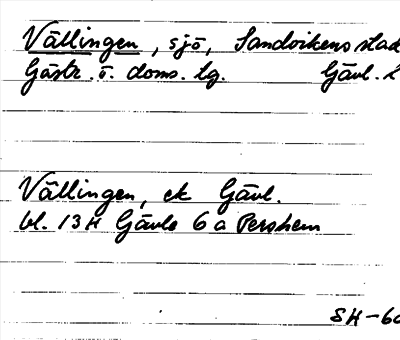 Vällingen, sjö, Sandvikens stad
Gästr. ö. doms. lg. Gävl. l
Vällingen, ek Gävl.
bl. 13H Gävle 6 a Pershem
SH-60